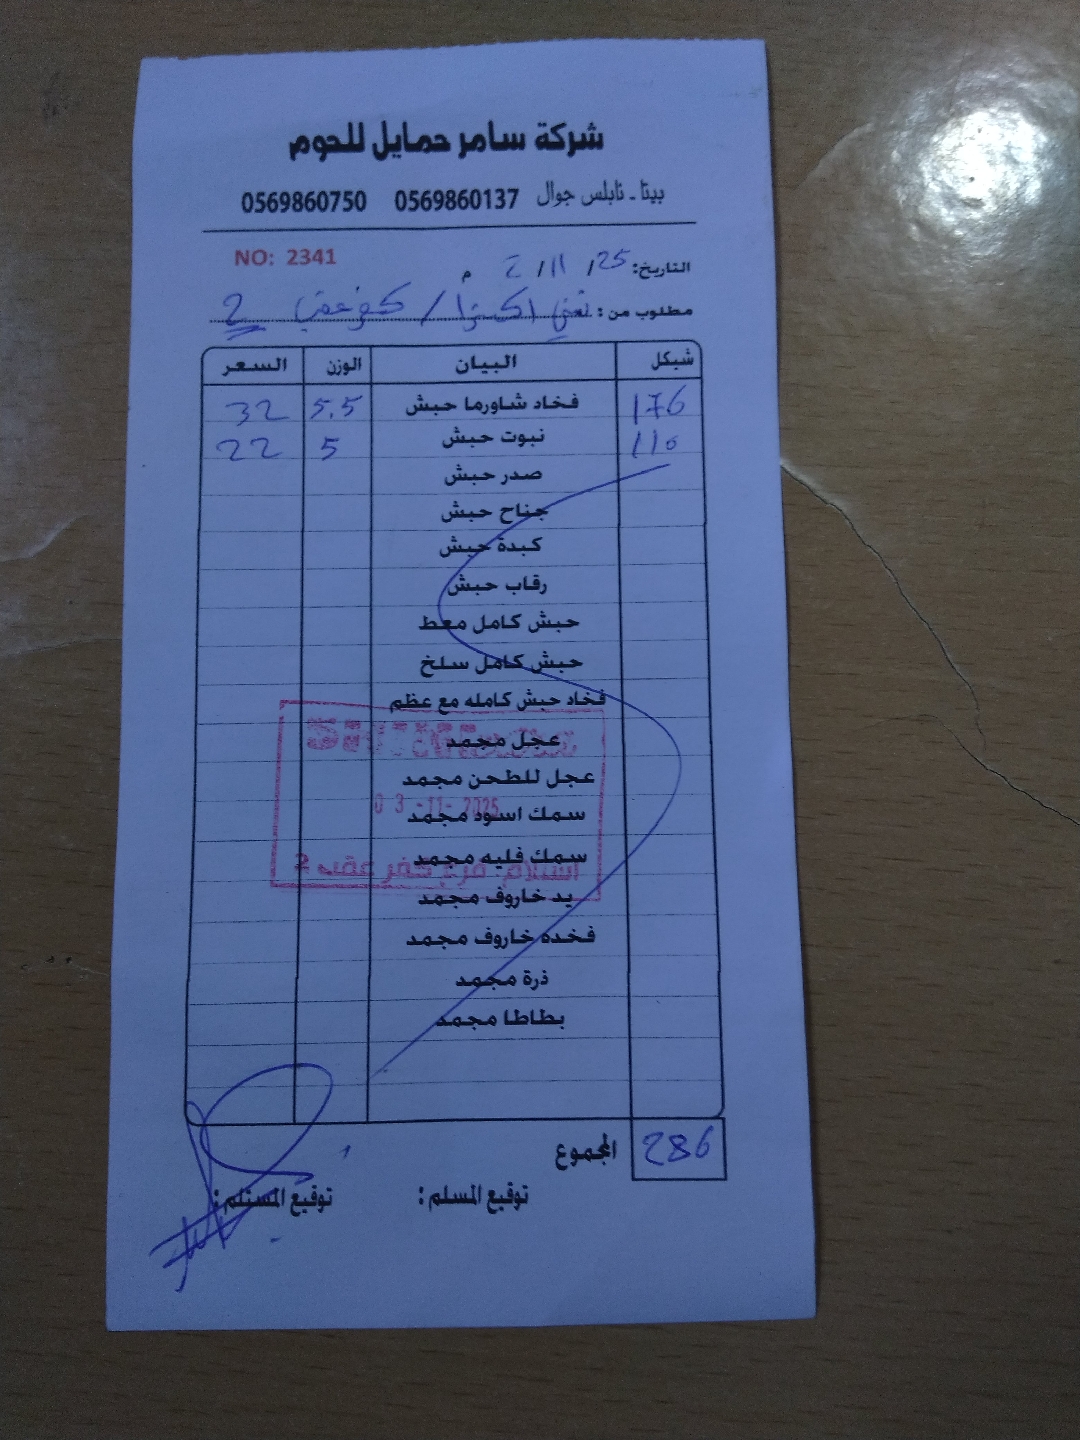 شركة سامر حمايل للحوم
بيتا - نابلس جوال 0569860137 0569860750
NO: 2341
التاريخ: 25 / 11 / 2 م
مطلوب من : اكسترا / كفر عقب 2
شيكل البيان الوزن السعر
176 فخاد شاورما حبش 5.5 32
110 نبوت حبش 5 22
صدر حبش
جناح حبش
كبدة حبش
رقاب حبش
حبش كامل معط
حبش كامل سلخ
فخاد حبش كامله مع عظم
عجل مجمد
عجل للطحن مجمد
03-11-2025
سمك اسود مجمد
سمك فليه مجمد
استلام فرع كفر عقب 2
يد خاروف مجمد
فخدة خاروف مجمد
ذرة مجمد
بطاطا مجمد
286 المجموع
توقيع المسلم : توقيع المستلم :